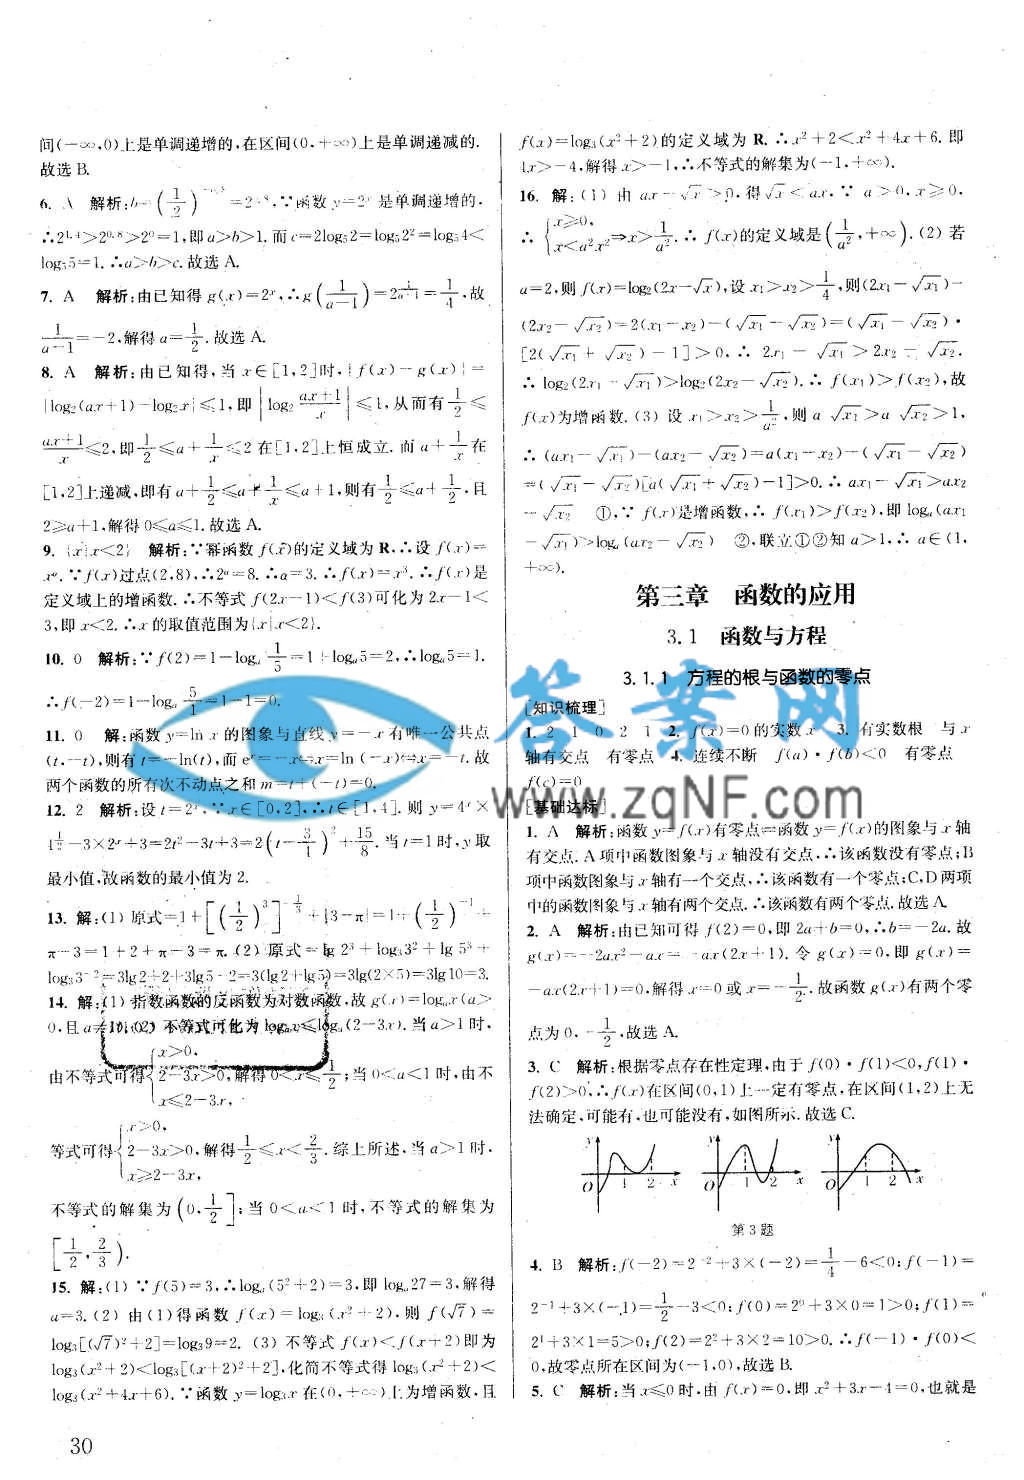 间(-∞,0)上是单调递增的,在区间(0,+∞)上是单调递减的.
故选B.
6. A 解析:b=(1/2)^-0.8=2^0.8,∵函数 y=2^x 是单调递增的,
∴2^1.4>2^0.8>2^0=1,即a>b>1.而c=2log₅2=log₅2²=log₅4<
log₅5=1.∴a>b>c.故选A.
7. A 解析:由已知得g(x)=2^x,∴g(1/(a-1))=2^(1/(a-1))=1/4,故
1/(a-1)=-2,解得a=1/2.故选A.
8. A 解析:由已知得,当x∈[1,2]时,|f(x)-g(x)|=
|log₂(ax+1)-log₂x|≤1,即|log₂ (ax+1)/x|≤1,从而有1/2≤
(ax+1)/x≤2,即1/2≤a+1/x≤2在[1,2]上恒成立.而a+1/x在
[1,2]上递减,即有a+1/2≤a+1/x≤a+1,则有1/2≤a+1/2,且
2≥a+1,解得0≤a≤1.故选A.
9. {x|x<2} 解析:∵幂函数f(x)的定义域为R,∴设f(x)=
x^α.∵f(x)过点(2,8),∴2^α=8.∴α=3.∴f(x)=x³.∴f(x)是
定义域上的增函数.∴不等式f(2x-1)<f(3)可化为2x-1<
3,即x<2.∴x的取值范围为{x|x<2}.
10. 0 解析:∵f(2)=1-logₐ 1/5=1+logₐ5=2,∴logₐ5=1.
∴f(-2)=1-logₐ 5/1=1-1=0.
11. 0 解:函数y=ln x的图象与直线y=-x有唯一公共点
(t,-t),则有t=-ln(t),而e^x=-x⇔x=ln(-x)⇔x=-t.故
两个函数的所有次不动点之和m=t+(-t)=0.
12. 2 解析:设t=2^x,∵x∈[0,2],∴t∈[1,4].则y=4^x×
4^(1/2)-3×2^x+3=2t²-3t+3=2(t-3/4)²+15/8.当t=1时,y取
最小值,故函数的最小值为2.
13. 解:(1)原式=1+[(1/2)³]^(-1/3)+|3-π|=1+(1/2)^-1+
π-3=1+2+π-3=π.(2)原式=lg 2³+log₃3²+lg 5³+
log₃3^-2=3lg2+2+3lg5-2=3(lg2+lg5)=3lg(2×5)=3lg10=3.
14. 解:(1)指数函数的反函数为对数函数,故g(x)=logₐx(a>
0,且a≠1).(2)不等式可化为logₐx≤logₐ(2-3x).当a>1时,
由不等式可得{x>0, 2-3x>0, x≤2-3x,解得0<x≤1/2;当0<a<1时,由不
等式可得{x>0, 2-3x>0, x≥2-3x,解得1/2≤x<2/3.综上所述,当a>1时,
不等式的解集为(0,1/2];当0<a<1时,不等式的解集为
[1/2,2/3).
15. 解:(1)∵f(5)=3,∴logₐ(5²+2)=3,即logₐ27=3,解得
a=3.(2)由(1)得函数f(x)=log₃(x²+2),则f(√7)=
log₃[(√7)²+2]=log₃9=2.(3)不等式f(x)<f(x+2)即为
log₃(x²+2)<log₃[(x+2)²+2],化简不等式得log₃(x²+2)<
log₃(x²+4x+6).∵函数y=log₃x在(0,+∞)上为增函数,且
30
f(x)=log₃(x²+2)的定义域为R.∴x²+2<x²+4x+6.即
4x>-4,解得x>-1,∴不等式的解集为(-1,+∞).
16. 解:(1)由ax-√x>0,得√x<ax.∵a>0,x≥0,
∴{x≥0, x<a²x²⇒x>1/a².∴f(x)的定义域是(1/a²,+∞).(2)若
a=2,则f(x)=log₂(2x-√x),设x₁>x₂>1/4,则(2x₁-√x₁)-
(2x₂-√x₂)=2(x₁-x₂)-(√x₁-√x₂)=(√x₁-√x₂)·
[2(√x₁+√x₂)-1]>0,∴2x₁-√x₁>2x₂-√x₂.
∴log₂(2x₁-√x₁)>log₂(2x₂-√x₂).∴f(x₁)>f(x₂),故
f(x)为增函数.(3)设x₁>x₂>1/a²,则a√x₁>a√x₂>1,
∴(ax₁-√x₁)-(ax₂-√x₂)=a(x₁-x₂)-(√x₁-√x₂)
=(√x₁-√x₂)[a(√x₁+√x₂)-1]>0.∴ax₁-√x₁>ax₂
-√x₂ ①,∵f(x)是增函数,∴f(x₁)>f(x₂),即logₐ(ax₁
-√x₁)>logₐ(ax₂-√x₂) ②,联立①②知a>1,∴a∈(1,
+∞).
第三章 函数的应用
3.1 函数与方程
3.1.1 方程的根与函数的零点
[知识梳理]
1. 2 1 0 2 1 2. f(x)=0的实数x 3. 有实数根 与x
轴有交点 有零点 4. 连续不断 f(a)·f(b)<0 有零点
f(c)=0
[基础达标]
1. A 解析:函数y=f(x)有零点⇔函数y=f(x)的图象与x轴
有交点.A项中函数图象与x轴没有交点,∴该函数没有零点;B
项中函数图象与x轴有一个交点,∴该函数有一个零点;C,D两项
中的函数图象与x轴有两个交点.∴该函数有两个零点.故选A.
2. A 解析:由已知可得f(2)=0,即2a+b=0,∴b=-2a.故
g(x)=-2ax²-ax=-ax(2x+1).令g(x)=0,即g(x)=
-ax(2x+1)=0,解得x=0或x=-1/2.故函数g(x)有两个零
点为0,-1/2,故选A.
3. C 解析:根据零点存在性定理,由于f(0)·f(1)<0,f(1)·
f(2)>0,∴f(x)在区间(0,1)上一定有零点,在区间(1,2)上无
法确定,可能有,也可能没有,如图所示.故选C.
y O 1 2 x y O 1 2 x y O 1 2 x
第3题
4. B 解析:f(-2)=2^-2+3×(-2)=1/4-6<0;f(-1)=
2^-1+3×(-1)=1/2-3<0;f(0)=2^0+3×0=1>0;f(1)=
2^1+3×1=5>0;f(2)=2²+3×2=10>0.∴f(-1)·f(0)<
0,故零点所在区间为(-1,0),故选B.
5. C 解析:当x≤0时,由f(x)=0,即x²+3x-4=0,也就是
答案网
www.zqNF.com